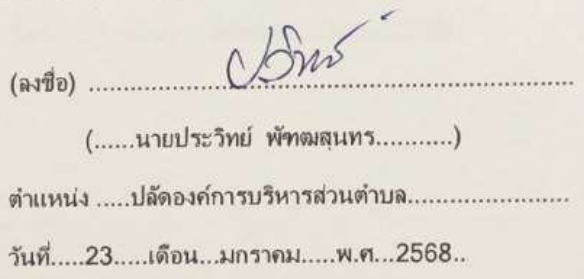 (ลงชื่อ) ................................................................
(......นายประวิทย์ พัฑฒสุนทร...........)
ตำแหน่ง .....ปลัดองค์การบริหารส่วนตำบล......................
วันที่.....23.....เดือน...มกราคม.....พ.ศ...2568..